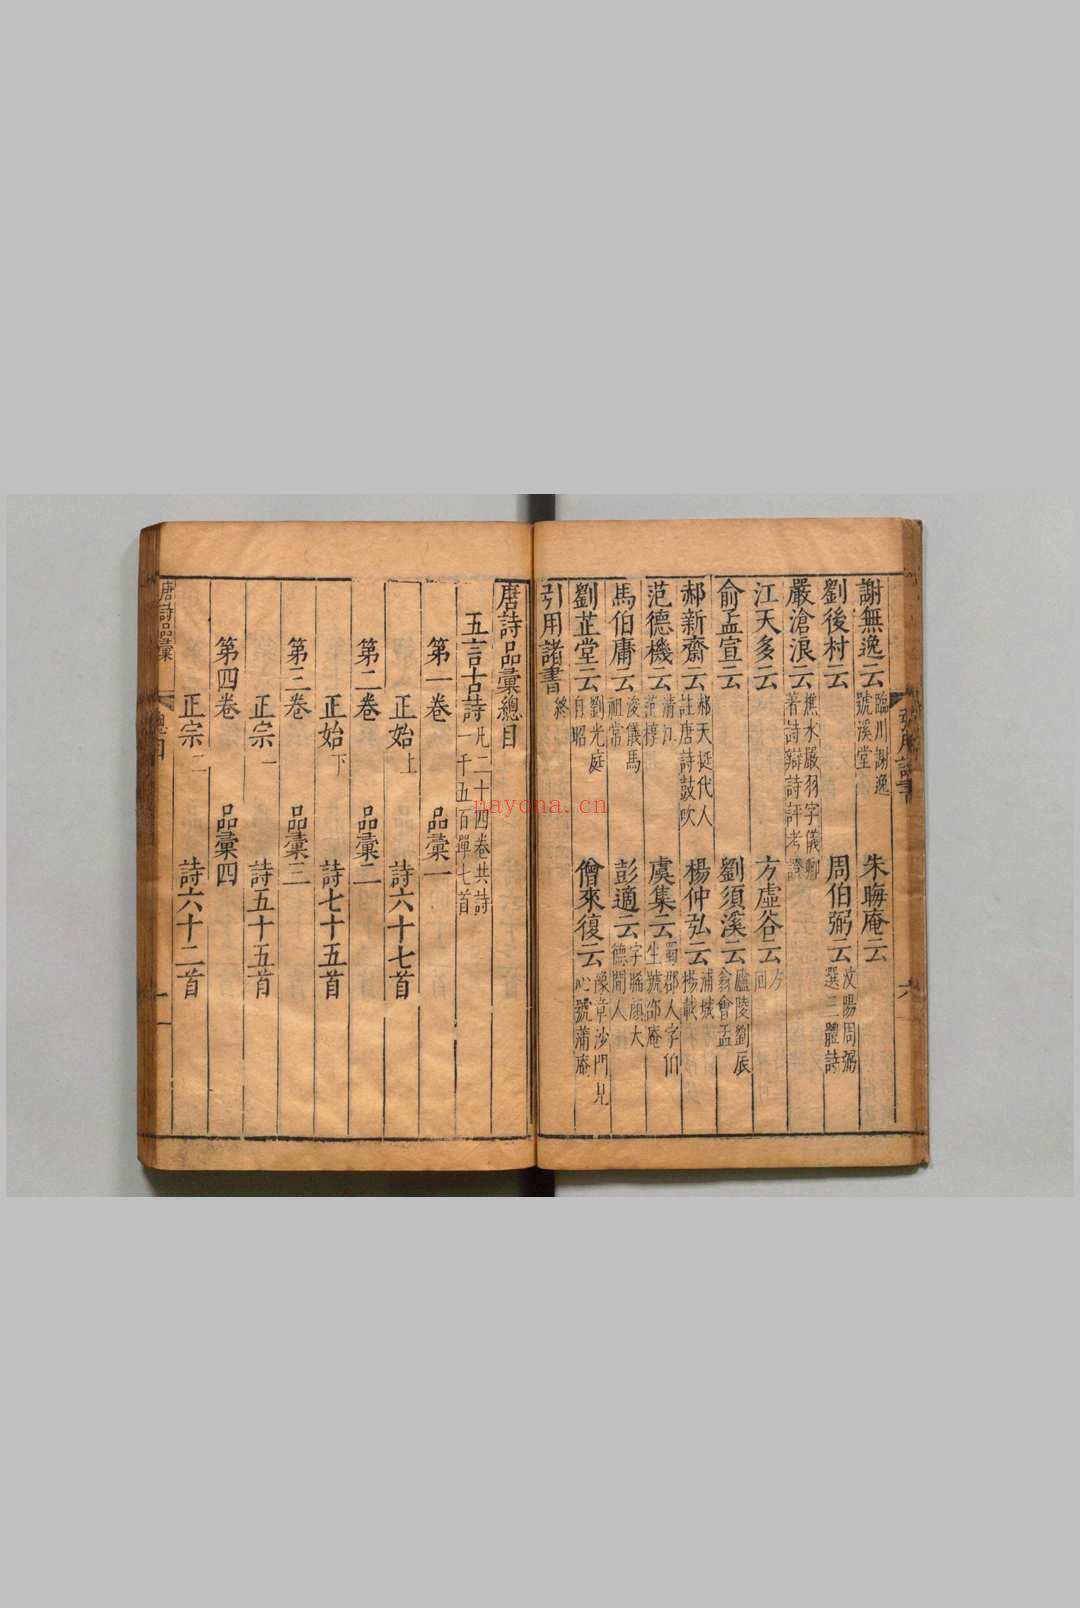 謝無逸云 臨川謝逸號溪堂 朱晦庵云
劉後村云 周伯弼云 汶陽周弼選三體詩
嚴滄浪云 樵水嚴羽字儀卿著詩辯詩評考證
江天多云 方虛谷云 方回
俞孟宣云 劉須溪云 廬陵劉辰翁會孟
郝新齋云 郝天挺代人註唐詩鼓吹 楊仲弘云 浦城楊載
范德機云 清江范梈 虞集云 蜀郡人字伯生號邵庵
馬伯庸云 浚儀馬祖常 彭適云 字 大德間人
劉芷堂云 劉光庭自昭 僧來復云 豫章沙門見心號蒲庵
引用諸書 終
引用諸書
六
唐詩品彙總目
五言古詩 凡二十四卷共詩一千五百單七首
第一卷 品彙一
正始上 詩六十七首
第二卷 品彙二
正始下 詩七十五首
第三卷 品彙三
正宗一 詩五十五首
第四卷 品彙四
正宗二 詩六十二首
唐詩品彙
總目
一
nayona.cn